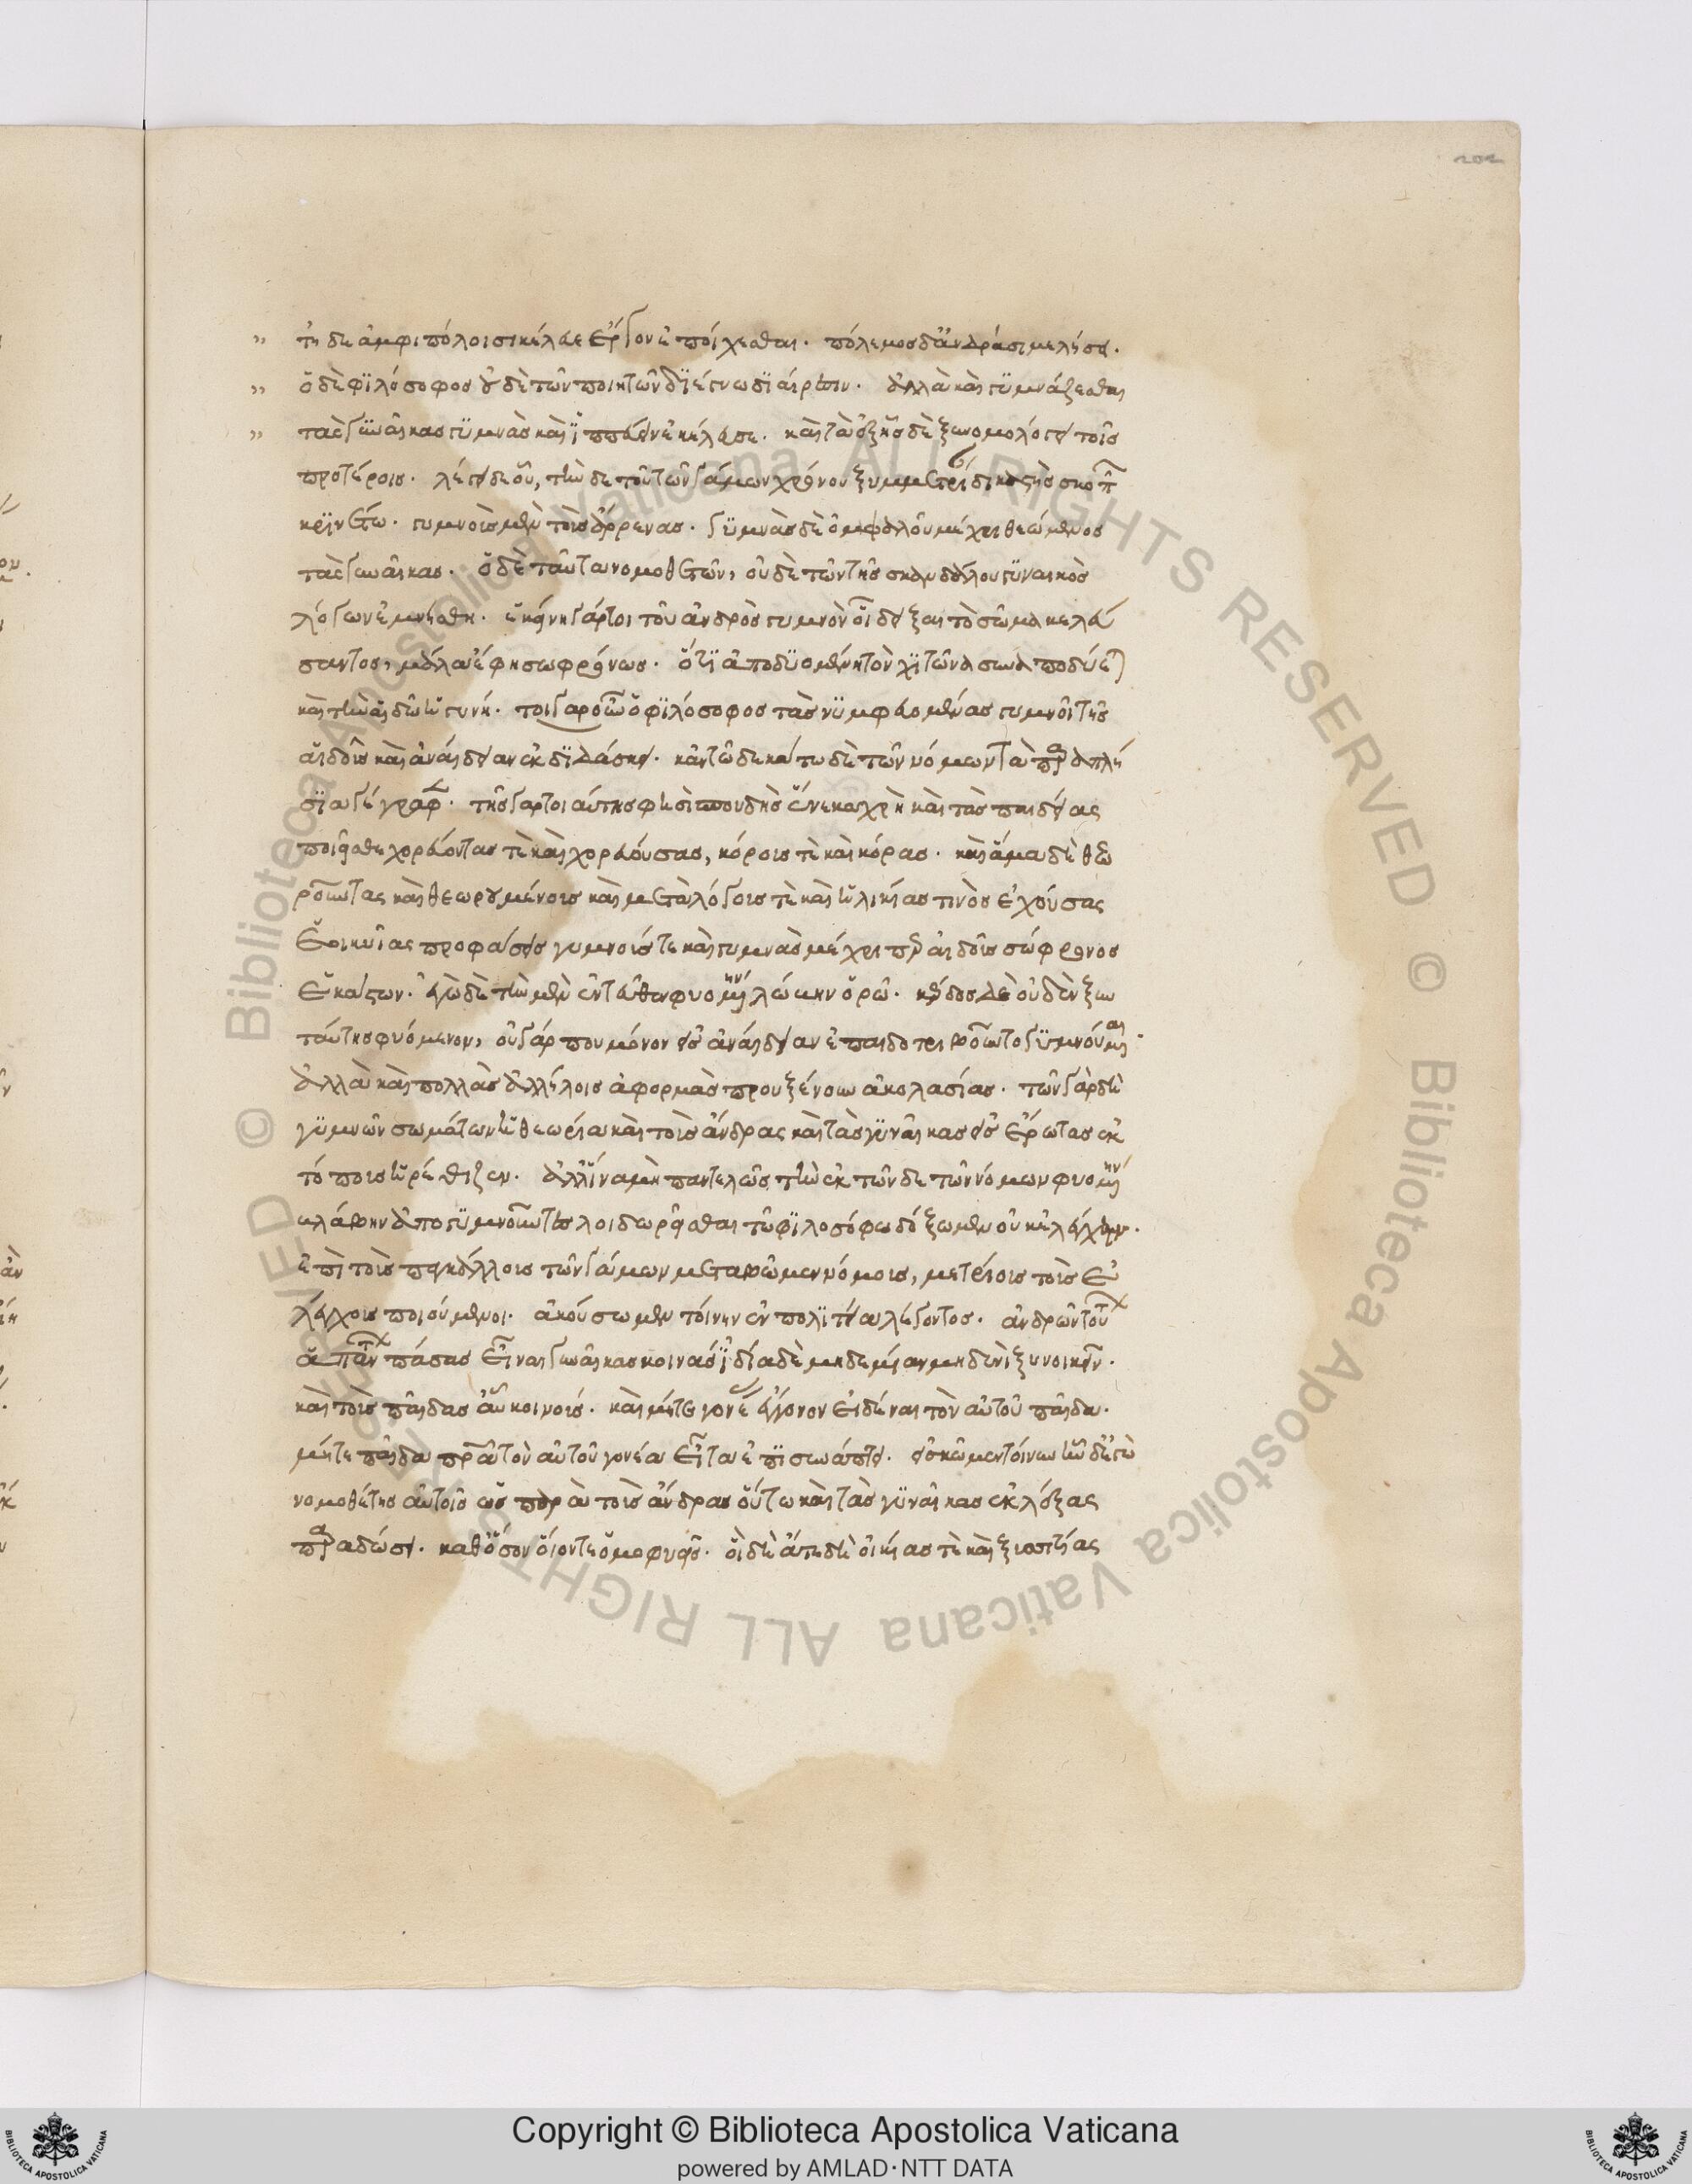 202
τῇ δε ἀμφιπόλοισι κέλευε ἔργον ἐποίχεσθαι. πόλεμος δ' ἄνδρασι μελήσει.
ὁ δὲ φιλόσοφος οὐδὲ τῶν ποιητῶν διέγνω διαίρεσιν. ἀλλὰ καὶ γυμνάζεσθαι
τὰς γυναῖκας γυμνὰς καὶ ἱππεύειν ἐκέλευσε. καὶ τὰ ἑξῆς δὲ ξυνομολογεῖ τοῖς
προτέροις. λέγει δε οὕτω, τὴν δε τοῦ τῶν γάμων χρόνου ξυμμετρίαν δικαστὴς σκοπῶν
κρινέτω. γυμνοὺς μὲν τοὺς ἄρρενας. γυμνὰς δὲ ὀμφαλοῦ μέχρι θεώμενος
τὰς γυναῖκας. ὁ δὲ ταῦτα νομοθετῶν, οὐδὲ τῶν τῆς σκανδάλου γυναικὸς
λόγων ἐμνήσθη. ἐκείνη γάρ τοι τοῦ ἀνδρὸς γυμνὸν οἱ δεῖξαι τὸ σῶμα κελεύ
σαντος, μάλα ἔφη σωφρόνως. ὅτι ἀποδυομένη τὸν χιτῶνα συναποδύεται
καὶ τὴν αἰδῶ ἡ γυνή. τοιγαροῦν ὁ φιλόσοφος τὰς νυμφευομένας γυμνοῖ τῆς
αἰδοῦς καὶ ἀναίδειαν ἐκδιδάσκει. κἀν τῷ δεκάτῳ δὲ τῶν νόμων τὰ παραπλή
σια γέγραφε. τῆς γάρ τοι αὐτῆς φησὶ σπουδῆς ἕνεκα χρὴ καὶ τὰς παιδείας
ποιεῖσθαι χορεύοντας τὲ καὶ χορευούσας, κόρους τὲ καὶ κόρας. καὶ ἅμα δὲ θεω
ροῦντας καὶ θεωρουμένους καὶ μετὰ λόγους τὲ καὶ ἡλικίας τινὸς ἐχούσας
ἐοικυίας προφάσεις γυμνούς τε καὶ γυμνὰς μέχρι περ αἰδοῦς σώφρονος
ἑκάστων. ἐγὼ δὲ τὴν μὲν ἐντεῦθεν φυομένην λώβην ὁρῶ. κέρδος δὲ οὐδὲν ἐκ
ταύτης φυόμενον, οὐ γάρ που μόνον εἰς ἀναίδειαν ἐπαιδοτριβοῦντο γυμνούμεναι.
ἀλλὰ καὶ πολλὰς ἀλλήλοις ἀφορμὰς προυξένουν ἀκολασίας. τῶν γὰρ δὴ
γυμνῶν σωμάτων ἡ θεωρία καὶ τοὺς ἄνδρας καὶ τὰς γυναῖκας εἰς ἔρωτας ἐκ
τόπους ἠρέθιζεν. ἀλλ' ἵνα μὴ παντελῶς τὴν ἐκ τῶνδε τῶν νόμων φυομένην
βλάβην ἀπογυμνοῦντες λοιδωρεῖσθαι τῷ φιλοσόφῳ δόξωμεν οὐκ ἐλέγχειν.
ἐπὶ τοὺς παγκάλλους τῶν γάμων μεταβῶμεν νόμους, μετρίους τοὺς ἐ
λέγχους ποιούμενοι. ἀκούσωμεν τοίνυν ἐν πολιτεία λέγοντος. ἀνδρῶν τούτων
ἁπάντων πάσας εἶναι γυναῖκας κοινάς ἰδία δὲ μηδεμίαν μηδενὶ ξυνοικεῖν.
καὶ τοὺς παῖδας αὖ κοινούς. καὶ μήτε γονέα ἔγγονον εἰδέναι τὸν αὐτοῦ παῖδα.
μήτε παῖδα πρὸς αὐτὸν αὐτοῦ γονέα εἶτα ἐπισυνάπτει. εἰσκῶμεν τοίνυν ἦν δ' ἐγὼ
νομοθέτης αὐτοῖς ὡς παρὰ τοὺς ἄνδρας οὕτω καὶ τὰς γυναῖκας ἐκλέξας
παραδώσει. καθόσον οἷόν τε ὁμοφυεῖς. οἱ δὲ ἅτε δὴ οἰκίας τὲ καὶ ξισσιτίας
Copyright © Biblioteca Apostolica Vaticana
powered by AMLAD·NTT DATA